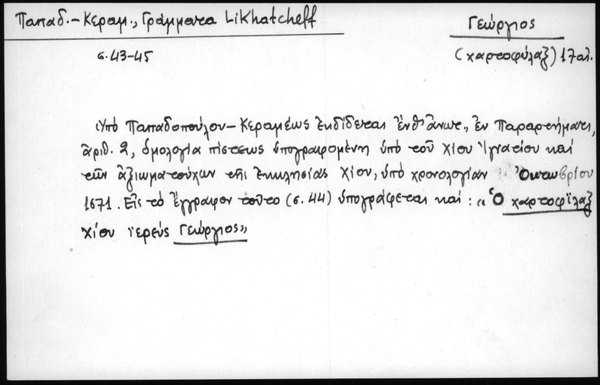 Παπαδ.-Κεραμ., Γράμματα Likhatcheff
Γεώργιος
σ. 43-45
(χαρτοφύλαξ) 17 αἰ.
Ὑπὸ Παπαδοπούλου-Κεραμέως ἐκδίδεται ἔνθ' ἄνωτ., ἐν Παραρτήματι,
ἀριθ. 2, ὁμολογία πίστεως ὑπογραφομένη ὑπὸ τοῦ Χίου Ἰγνατίου καὶ
τῶν ἀξιωματούχων τῆς ἐκκλησίας Χίου, ὑπὸ χρονολογίαν Ὀκτωβρίου
1671. Εἰς τὸ ἔγγραφον τοῦτο (σ. 44) ὑπογράφεται καὶ: «Ὁ χαρτοφίλαξ
Χίου ἱερεὺς Γεώργιος»